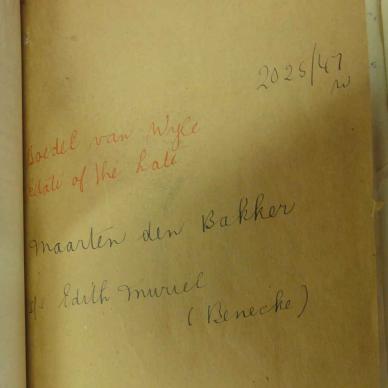 2025/47
W
Boedel van Wyle
Estate of the Late
Maarten den Bakker
s/s Edith Muriel
(Benecke)